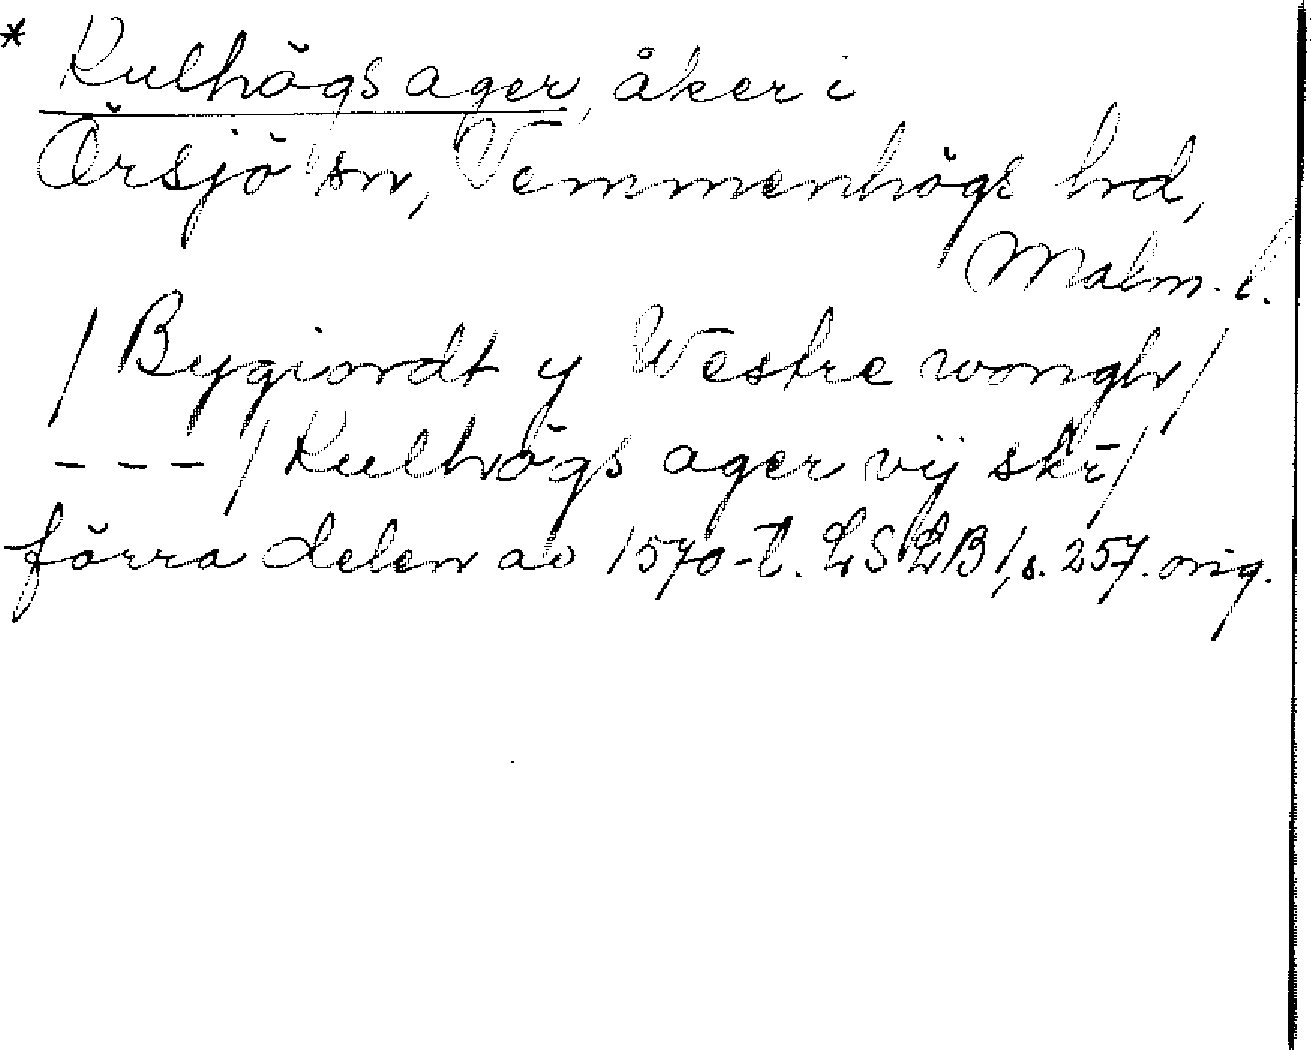 * Kulhögs ager, åker i
Örsjö sn, Vemmenhögs hd,
Malm. l.
/ Bygiordt y Westre wongh /
--- / Kulhögs ager vij skr /
förra delen av 1570-t. LSLB 1, s. 257. orig.